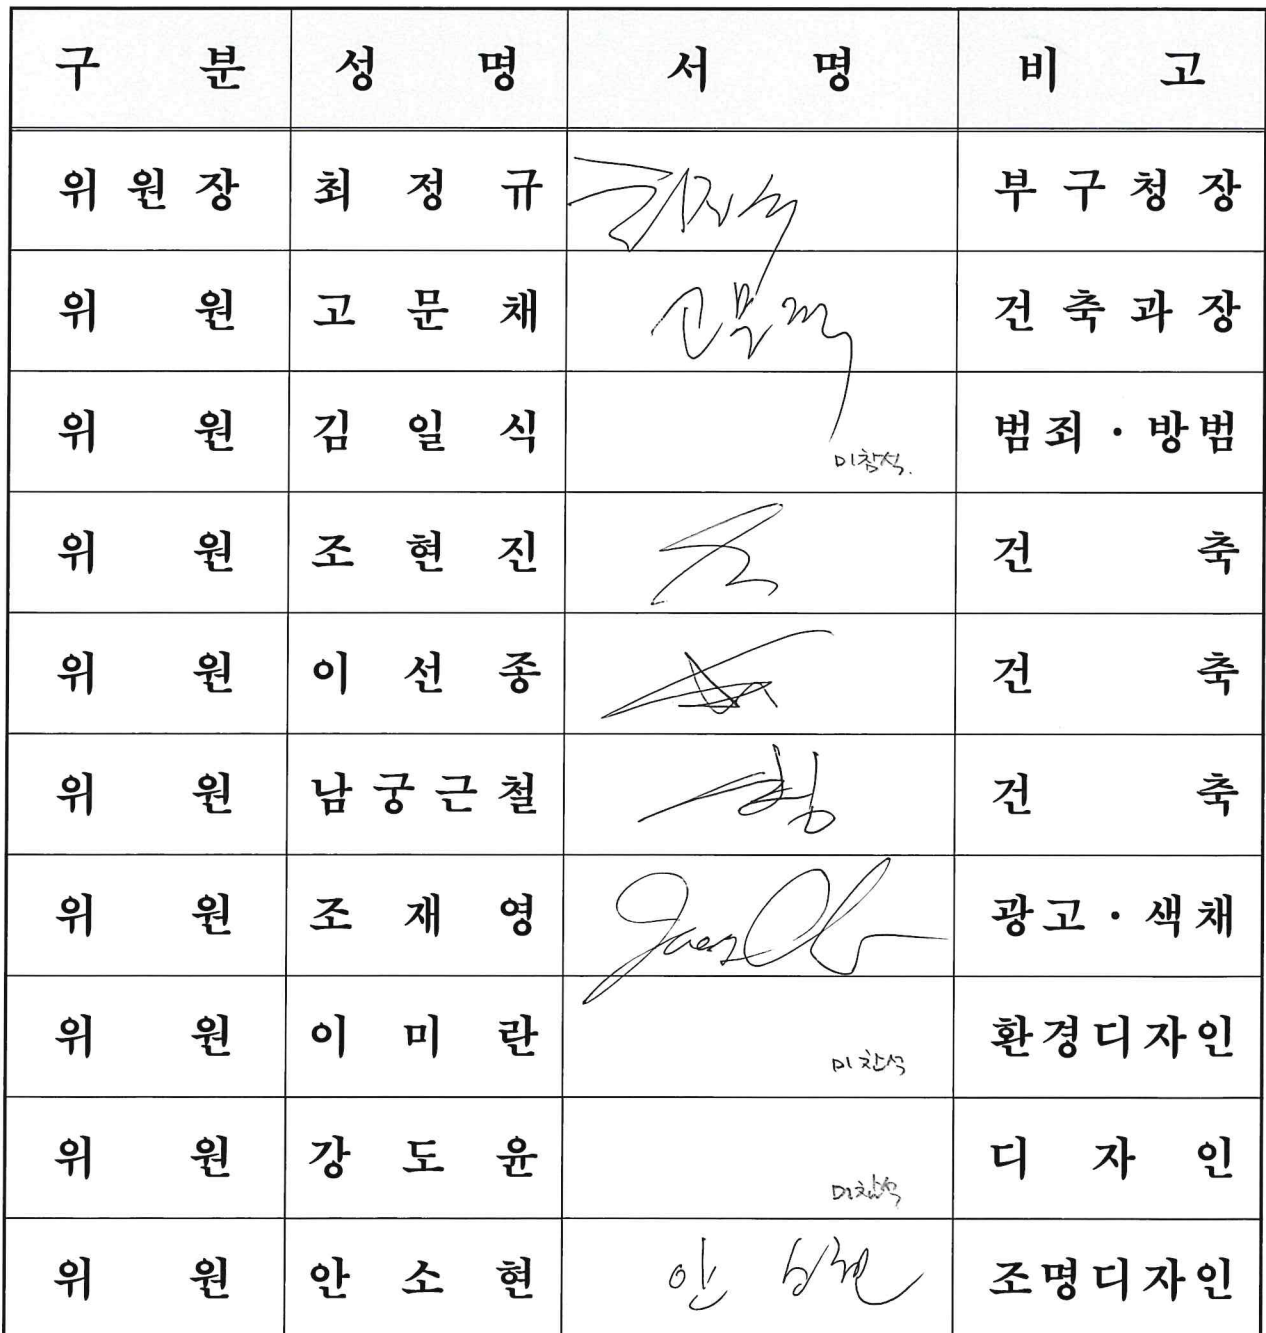 구 분 성 명 서 명 비 고
위 원 장 최 정 규 부 구 청 장
위 원 고 문 채 고문채 건 축 과 장
위 원 김 일 식 미참석. 범죄 · 방범
위 원 조 현 진 건 축
위 원 이 선 종 건 축
위 원 남 궁 근 철 건 축
위 원 조 재 영 광고 · 색채
위 원 이 미 란 미참석 환경디자인
위 원 강 도 윤 미참석 디 자 인
위 원 안 소 현 안 소현 조명디자인